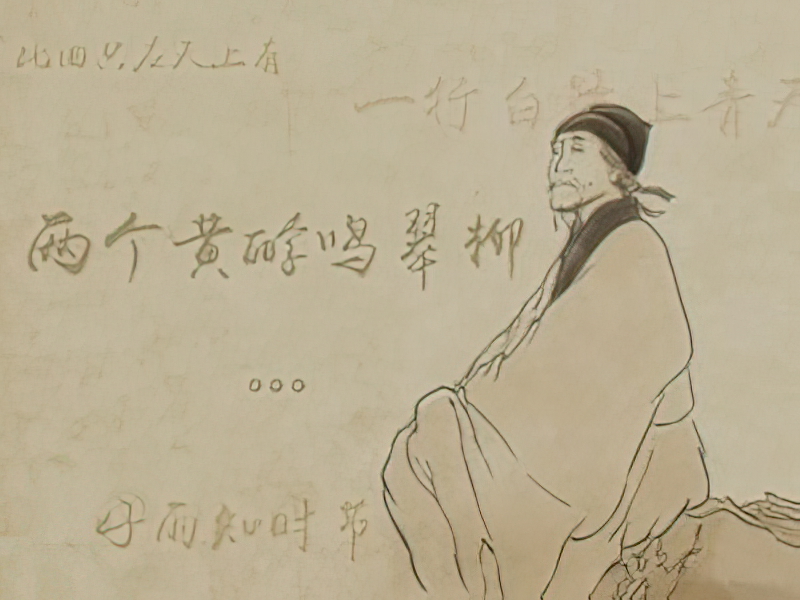 此曲只在天上有
一行白鹭上青天
两个黄鹂鸣翠柳
。。。
好雨知时节